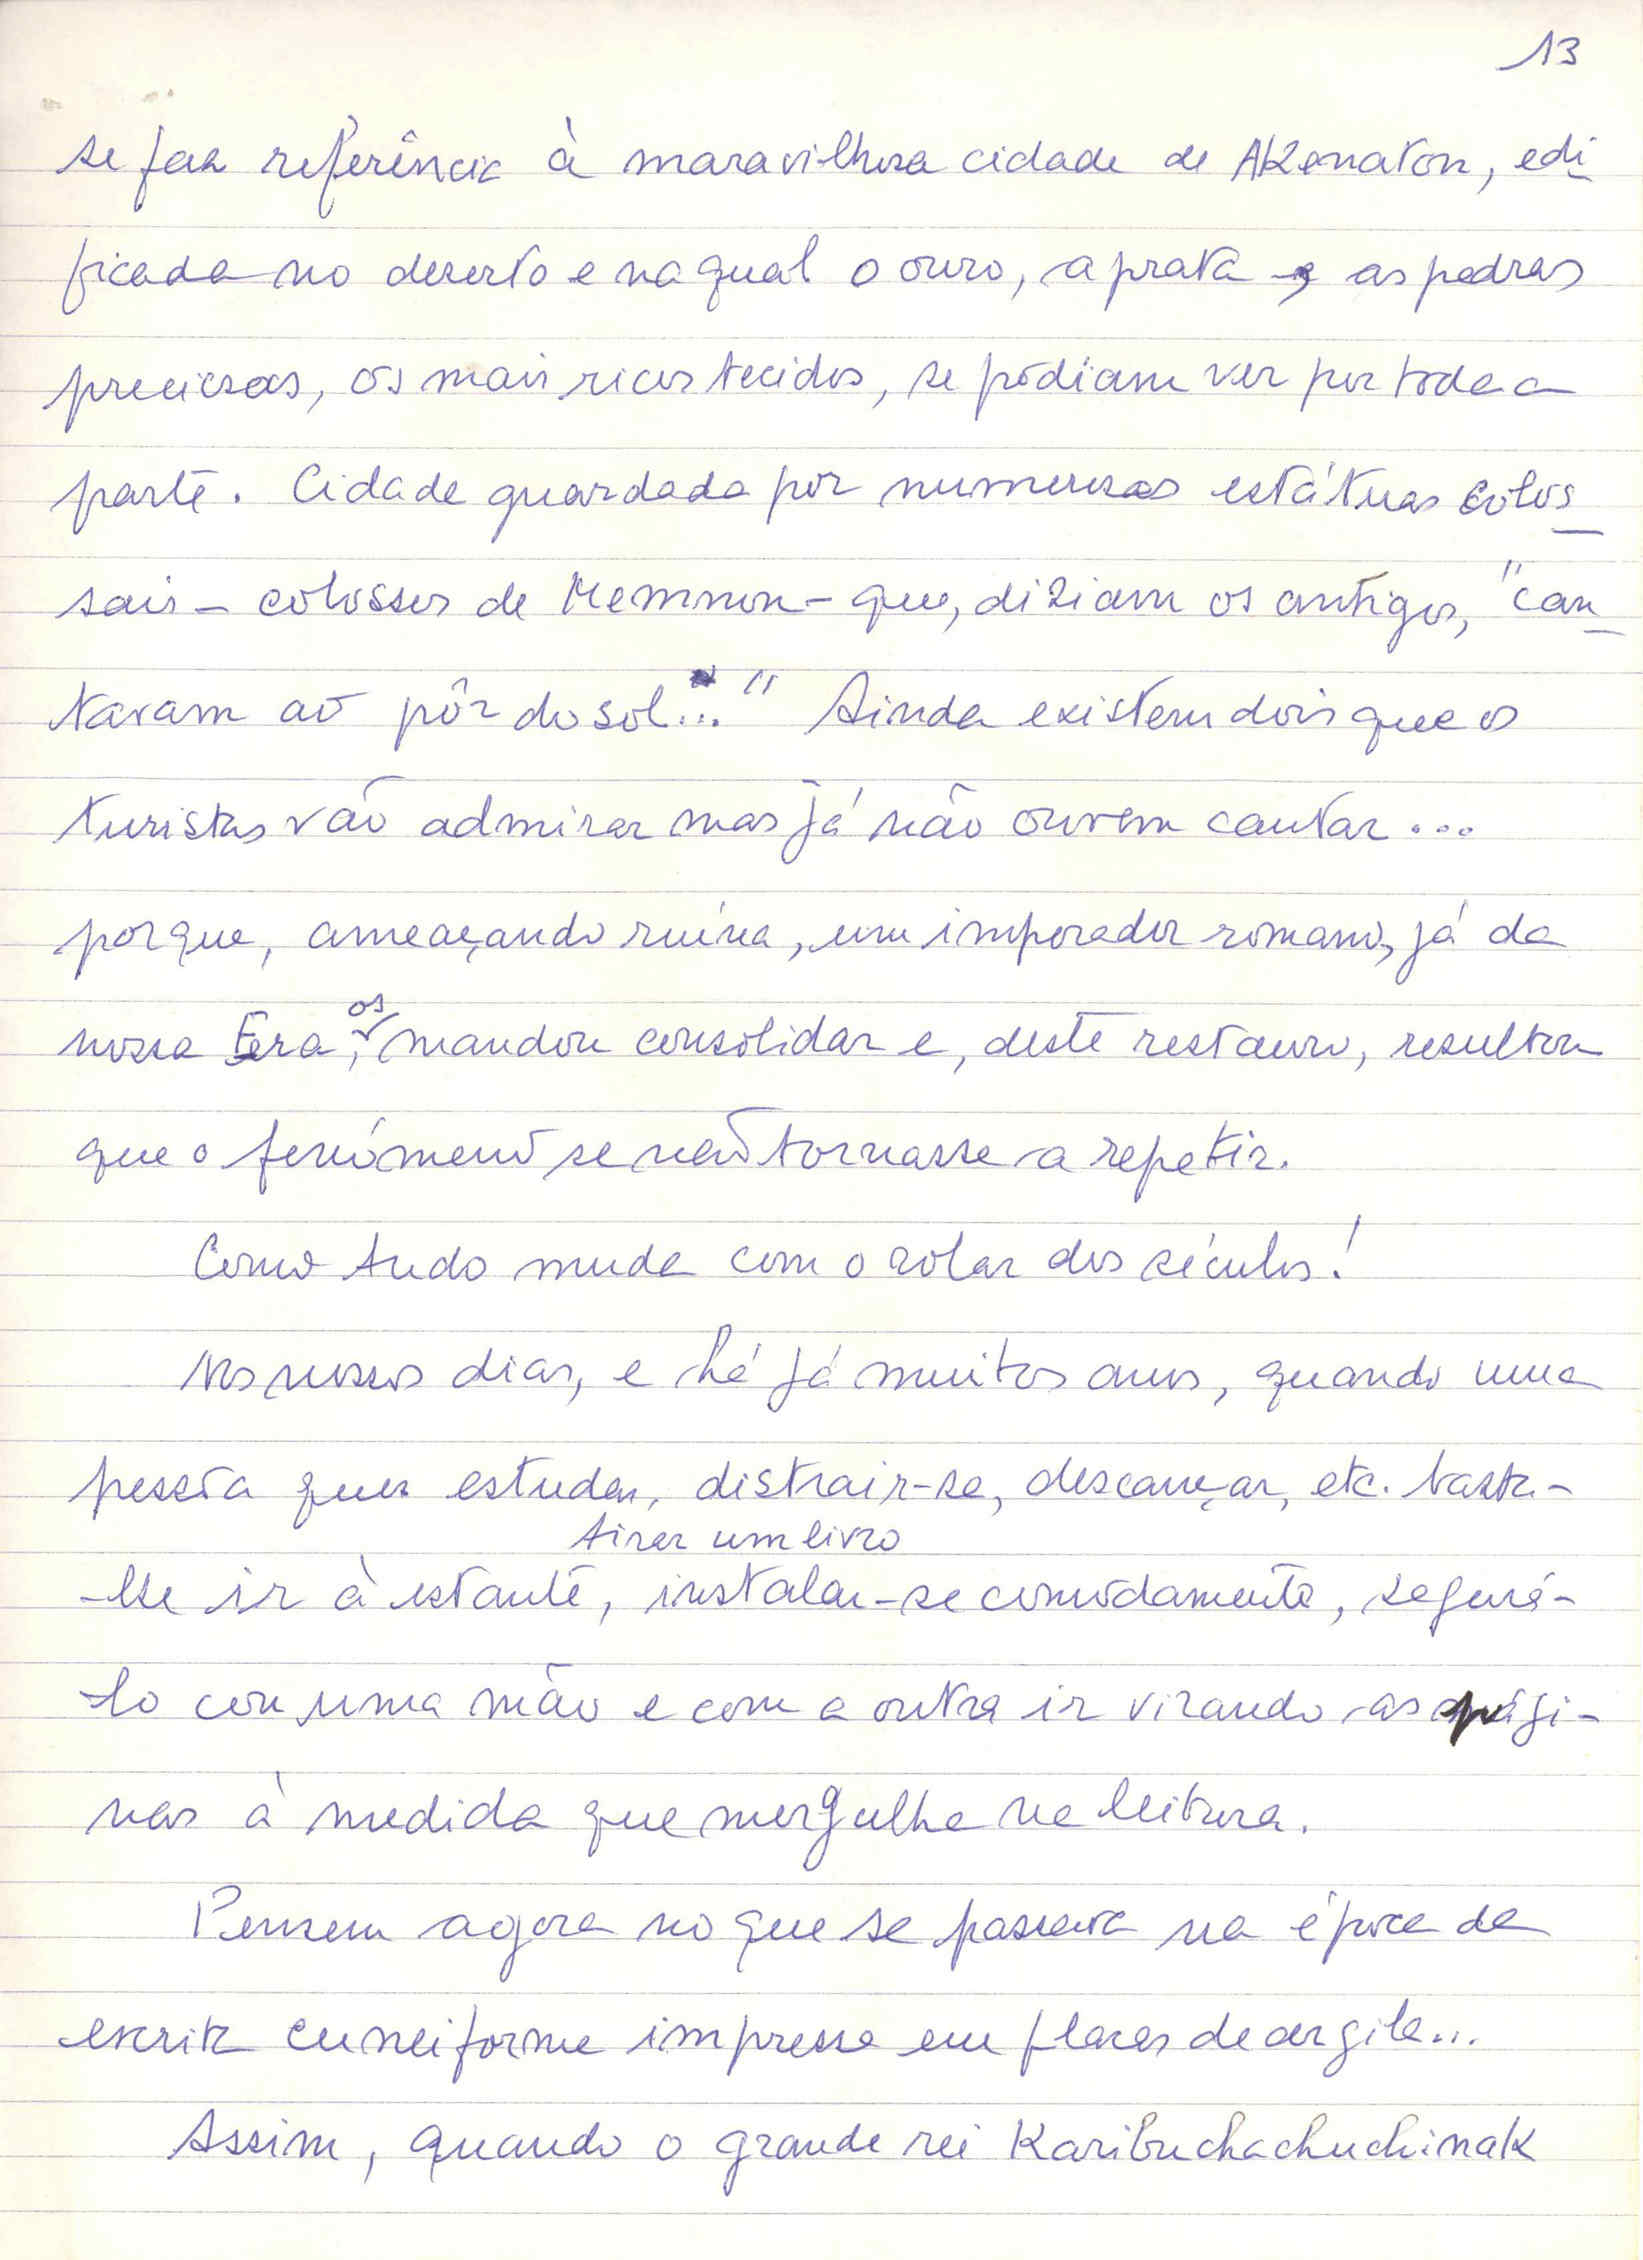 13
se faz referência à maravilhosa cidade de AKenaton, edi
ficada no deserto e na qual o ouro, a prata e as pedras
preciosas, os mais ricos tecidos, se podiam ver por toda a
parte. Cidade guardada por numerosas estátuas colos
sais - colossos de Memnon - que, diziam os antigos, "can
tavam ao pôr do sol..." Ainda existem dois que os
turistas vão admirar mas já não ouvem cantar...
porque, ameaçando ruína, um imperador romano, já da
nossa Era, os mandou consolidar e, deste restauro, resultou
que o fenómeno se não tornasse a repetir.
Como tudo muda com o rolar dos séculos!
Nos nossos dias, e há já muitos anos, quando uma
pessoa quer estudar, distrair-se, descançar, etc. basta-
tirar um livro
-lhe ir à estante, instalar-se comodamente, segurá-
lo com uma mão e com a outra ir virando as pági-
nas à medida que mergulha na leitura.
Pensem agora no que se passava na época da
escrita cuneiforme impressa em placas de argila...
Assim, quando o grande rei Karibuchachuchinak